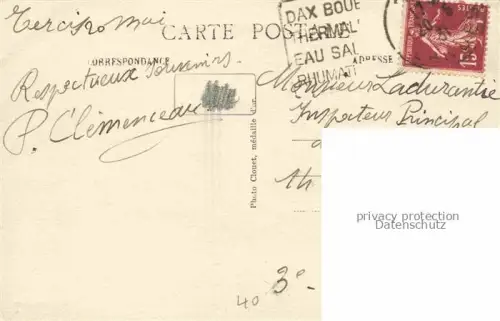 CARTE POSTALE
CORRESPONDANCE
ADRESSE
DAX BOUE
THERMAL
EAU SAL
RHUMAT
Respectueux Souvenirs
P. Clémenceau
Monsieur Ladurantie
Inspecteur Principal
Photo Clouet, médaille d'or.
privacy protection
Datenschutz
40
3e